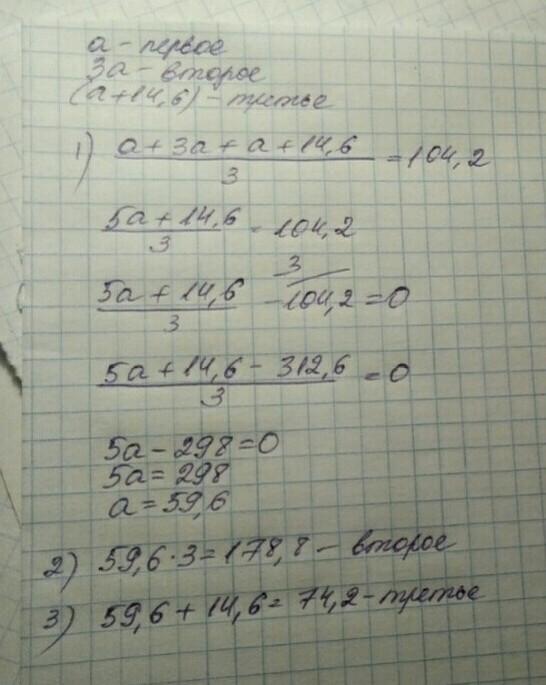 а - первое
3а - второе
(а+14,6) - третье
1) а + 3а + а + 14,6 = 104,2
3
5а + 14,6 = 104,2
3
3
5а + 14,6 - 104,2 = 0
3
5а + 14,6 - 312,6 = 0
3
5а - 298 = 0
5а = 298
а = 59,6
2) 59,6 · 3 = 178,8 - второе
3) 59,6 + 14,6 = 74,2 - третье